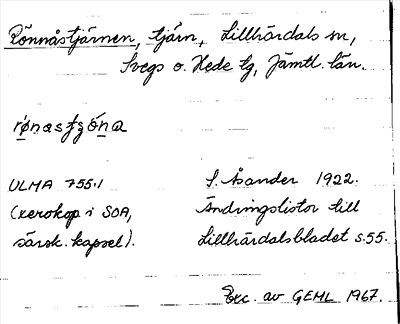 Rönnåstjärnen, tjärn, Lillhärdals sn,
Svegs o. Hede tg, Jämtl. län.
rǿnastjǿna
ULMA 755:1 S. Åsander 1922.
(xerokop i SOA, Ändringslistor till
särsk. kapsel). Lillhärdalsbladet s.55.
Exc. av GEML 1967.